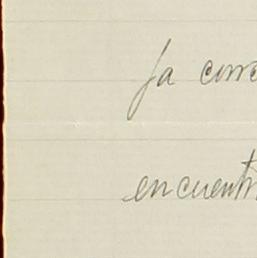 ja corre
encuentr